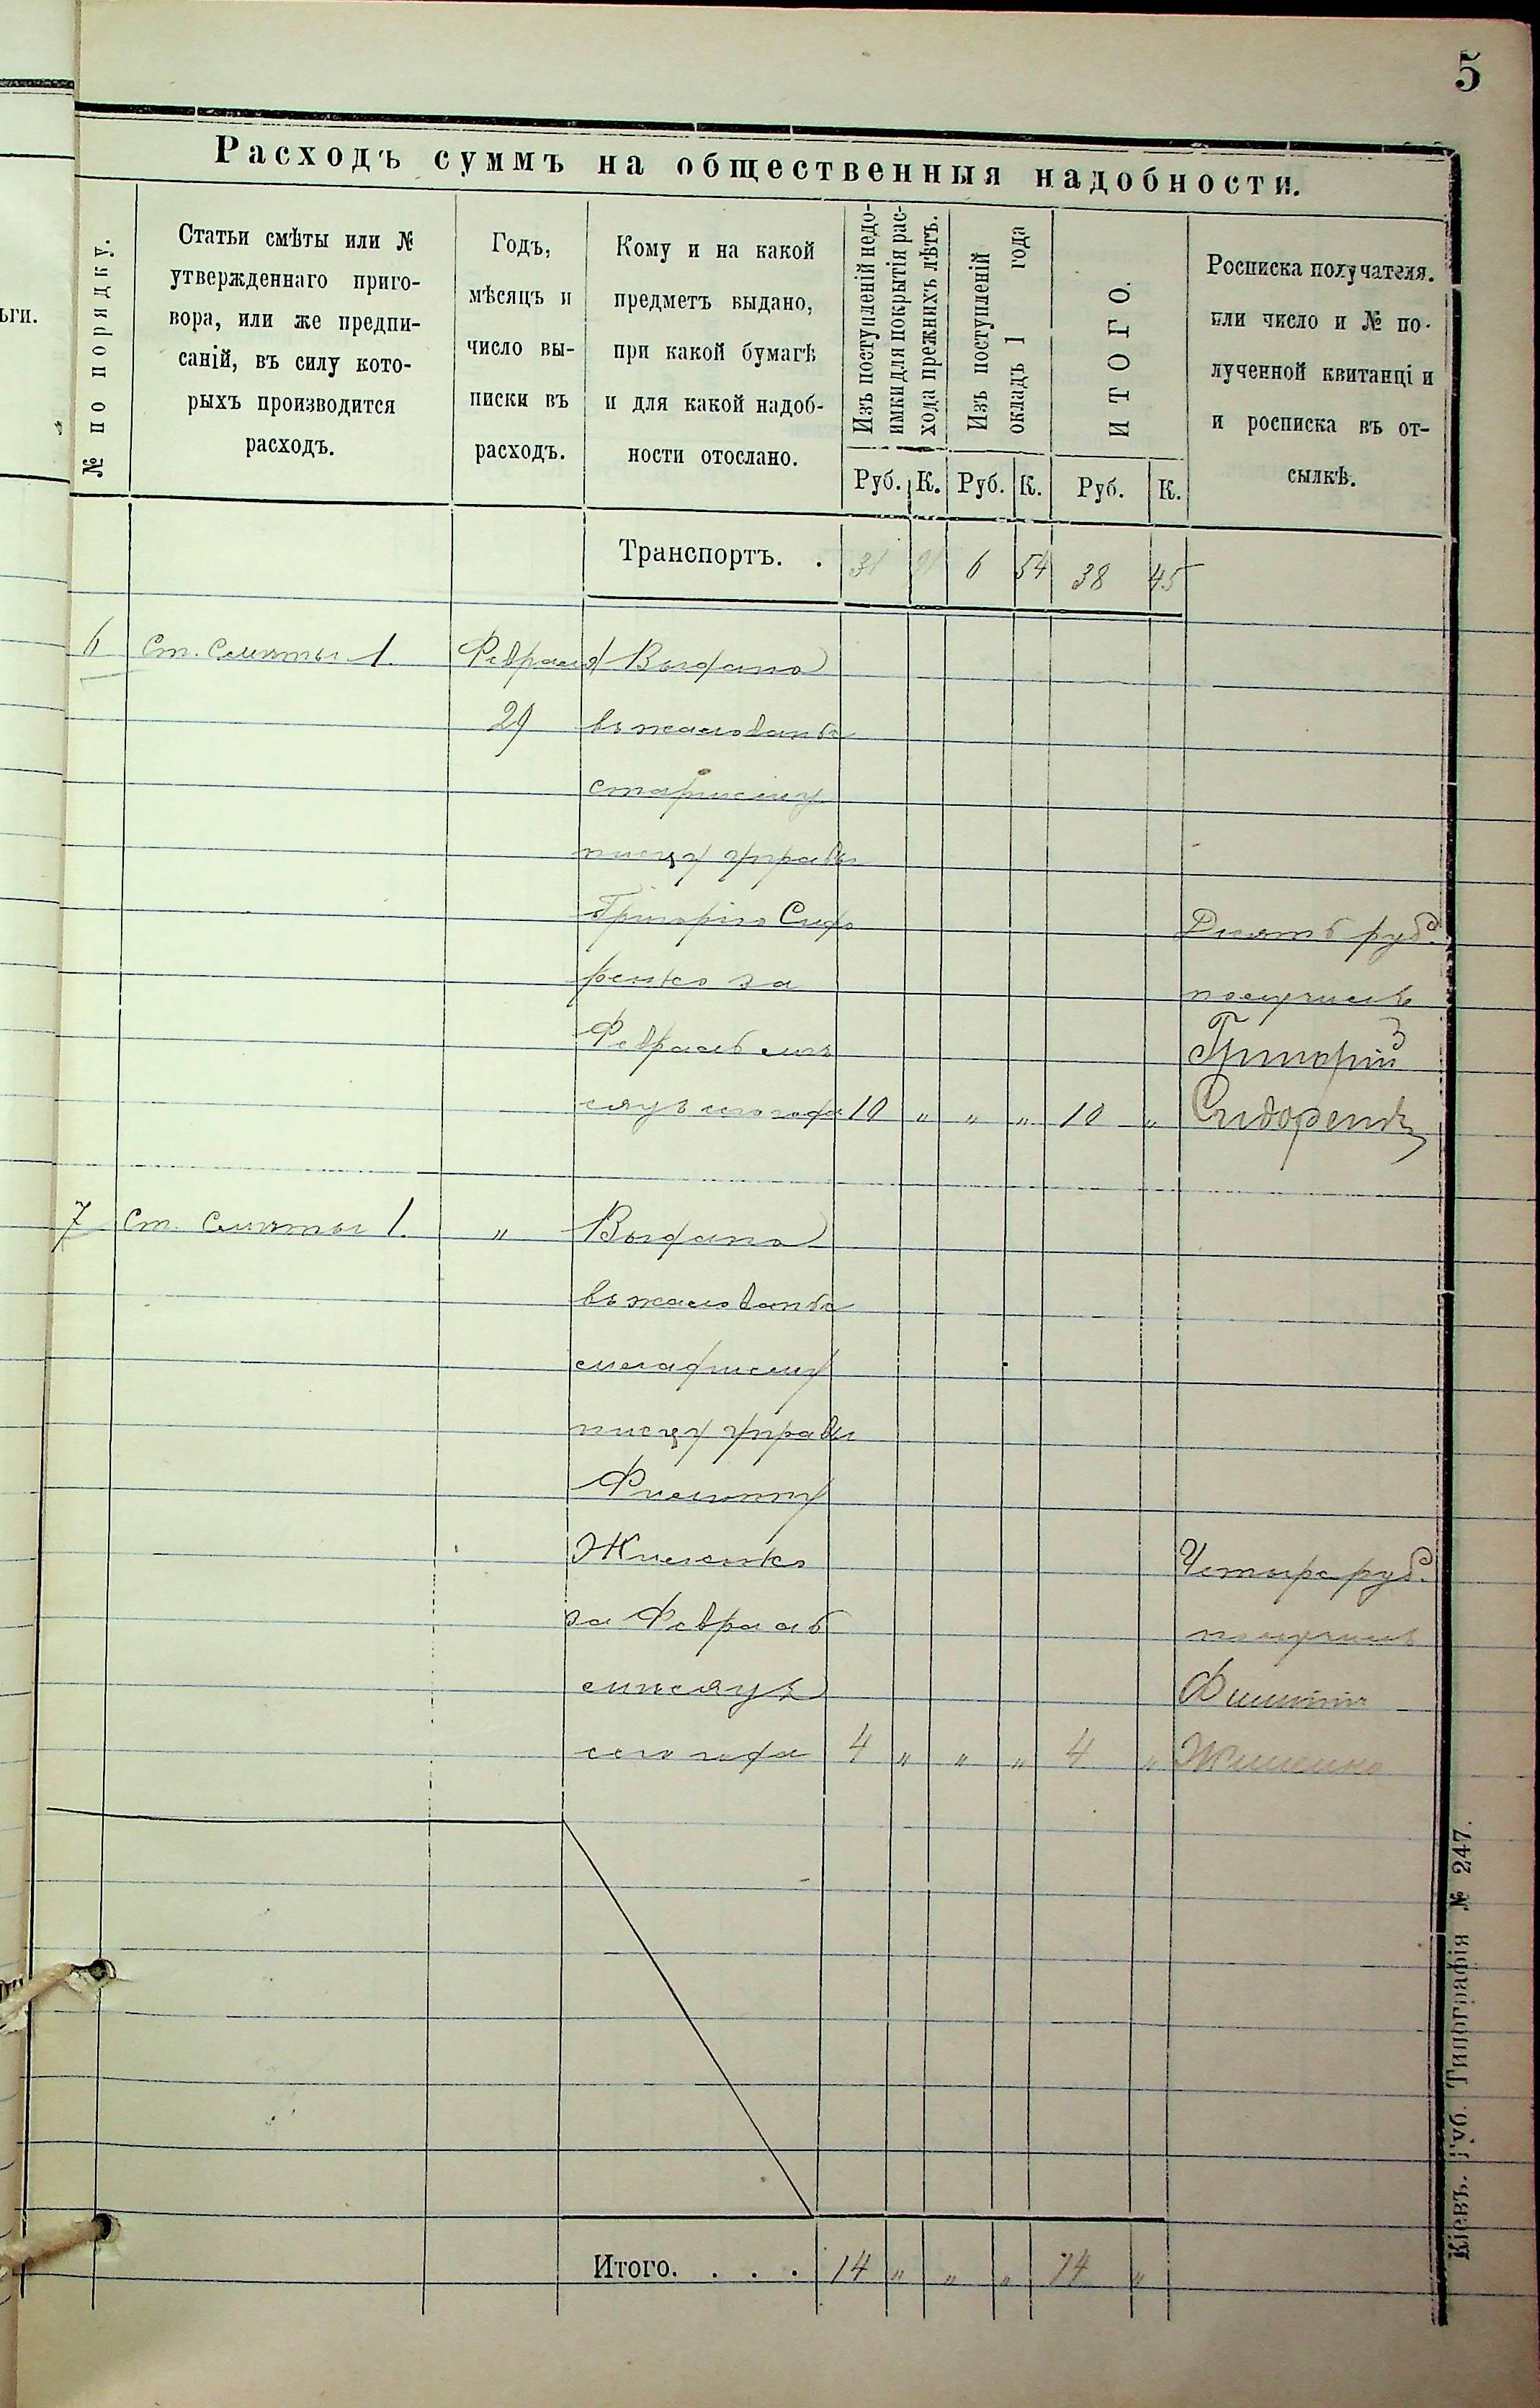 5
Расходъ суммъ на общественныя надобности.
№ по порядку.
Статьи смѣты или №
утвержденнаго приго-
вора, или же предпи-
саній, въ силу кото-
рыхъ производится
расходъ.
Годъ,
мѣсяцъ и
число вы-
писки въ
расходъ.
Кому и на какой
предметъ выдано,
при какой бумагѣ
и для какой надоб-
ности отослано.
Изъ поступленій недо-
имки для покрытія рас-
хода прежнихъ лѣтъ.
Изъ поступленій
окладъ 1 года
ИТОГО.
Росписка получателя.
или число и № по-
лученной квитанціи
и росписка въ от-
сылкѣ.
Руб. К. Руб. К. Руб. К.
ьги.
Транспортъ. . 31 91 6 54 38 45
6 Ст. Смѣты 1. Февраля Выдано
29 въ жалованье
старшему
писцу управы
Григорію Сидо
ренко за
Февраль мѣ
сяцъ сего года 10 „ „ „ 10 „
руб.
получилъ
Григорій
Сидоренко
7 Ст. Смѣты 1. „ Выдано
въ жалованье
младшему
писцу управы
Филиппу
Жиленко
за Февраль
мѣсяцъ
сего года 4 „ „ „ 4 „
Четыре руб.
получилъ
Филиппъ
Жиленко
Итого. . . . 14 „ „ „ 14 „
Кіевъ. Губ. Типографія № 247.